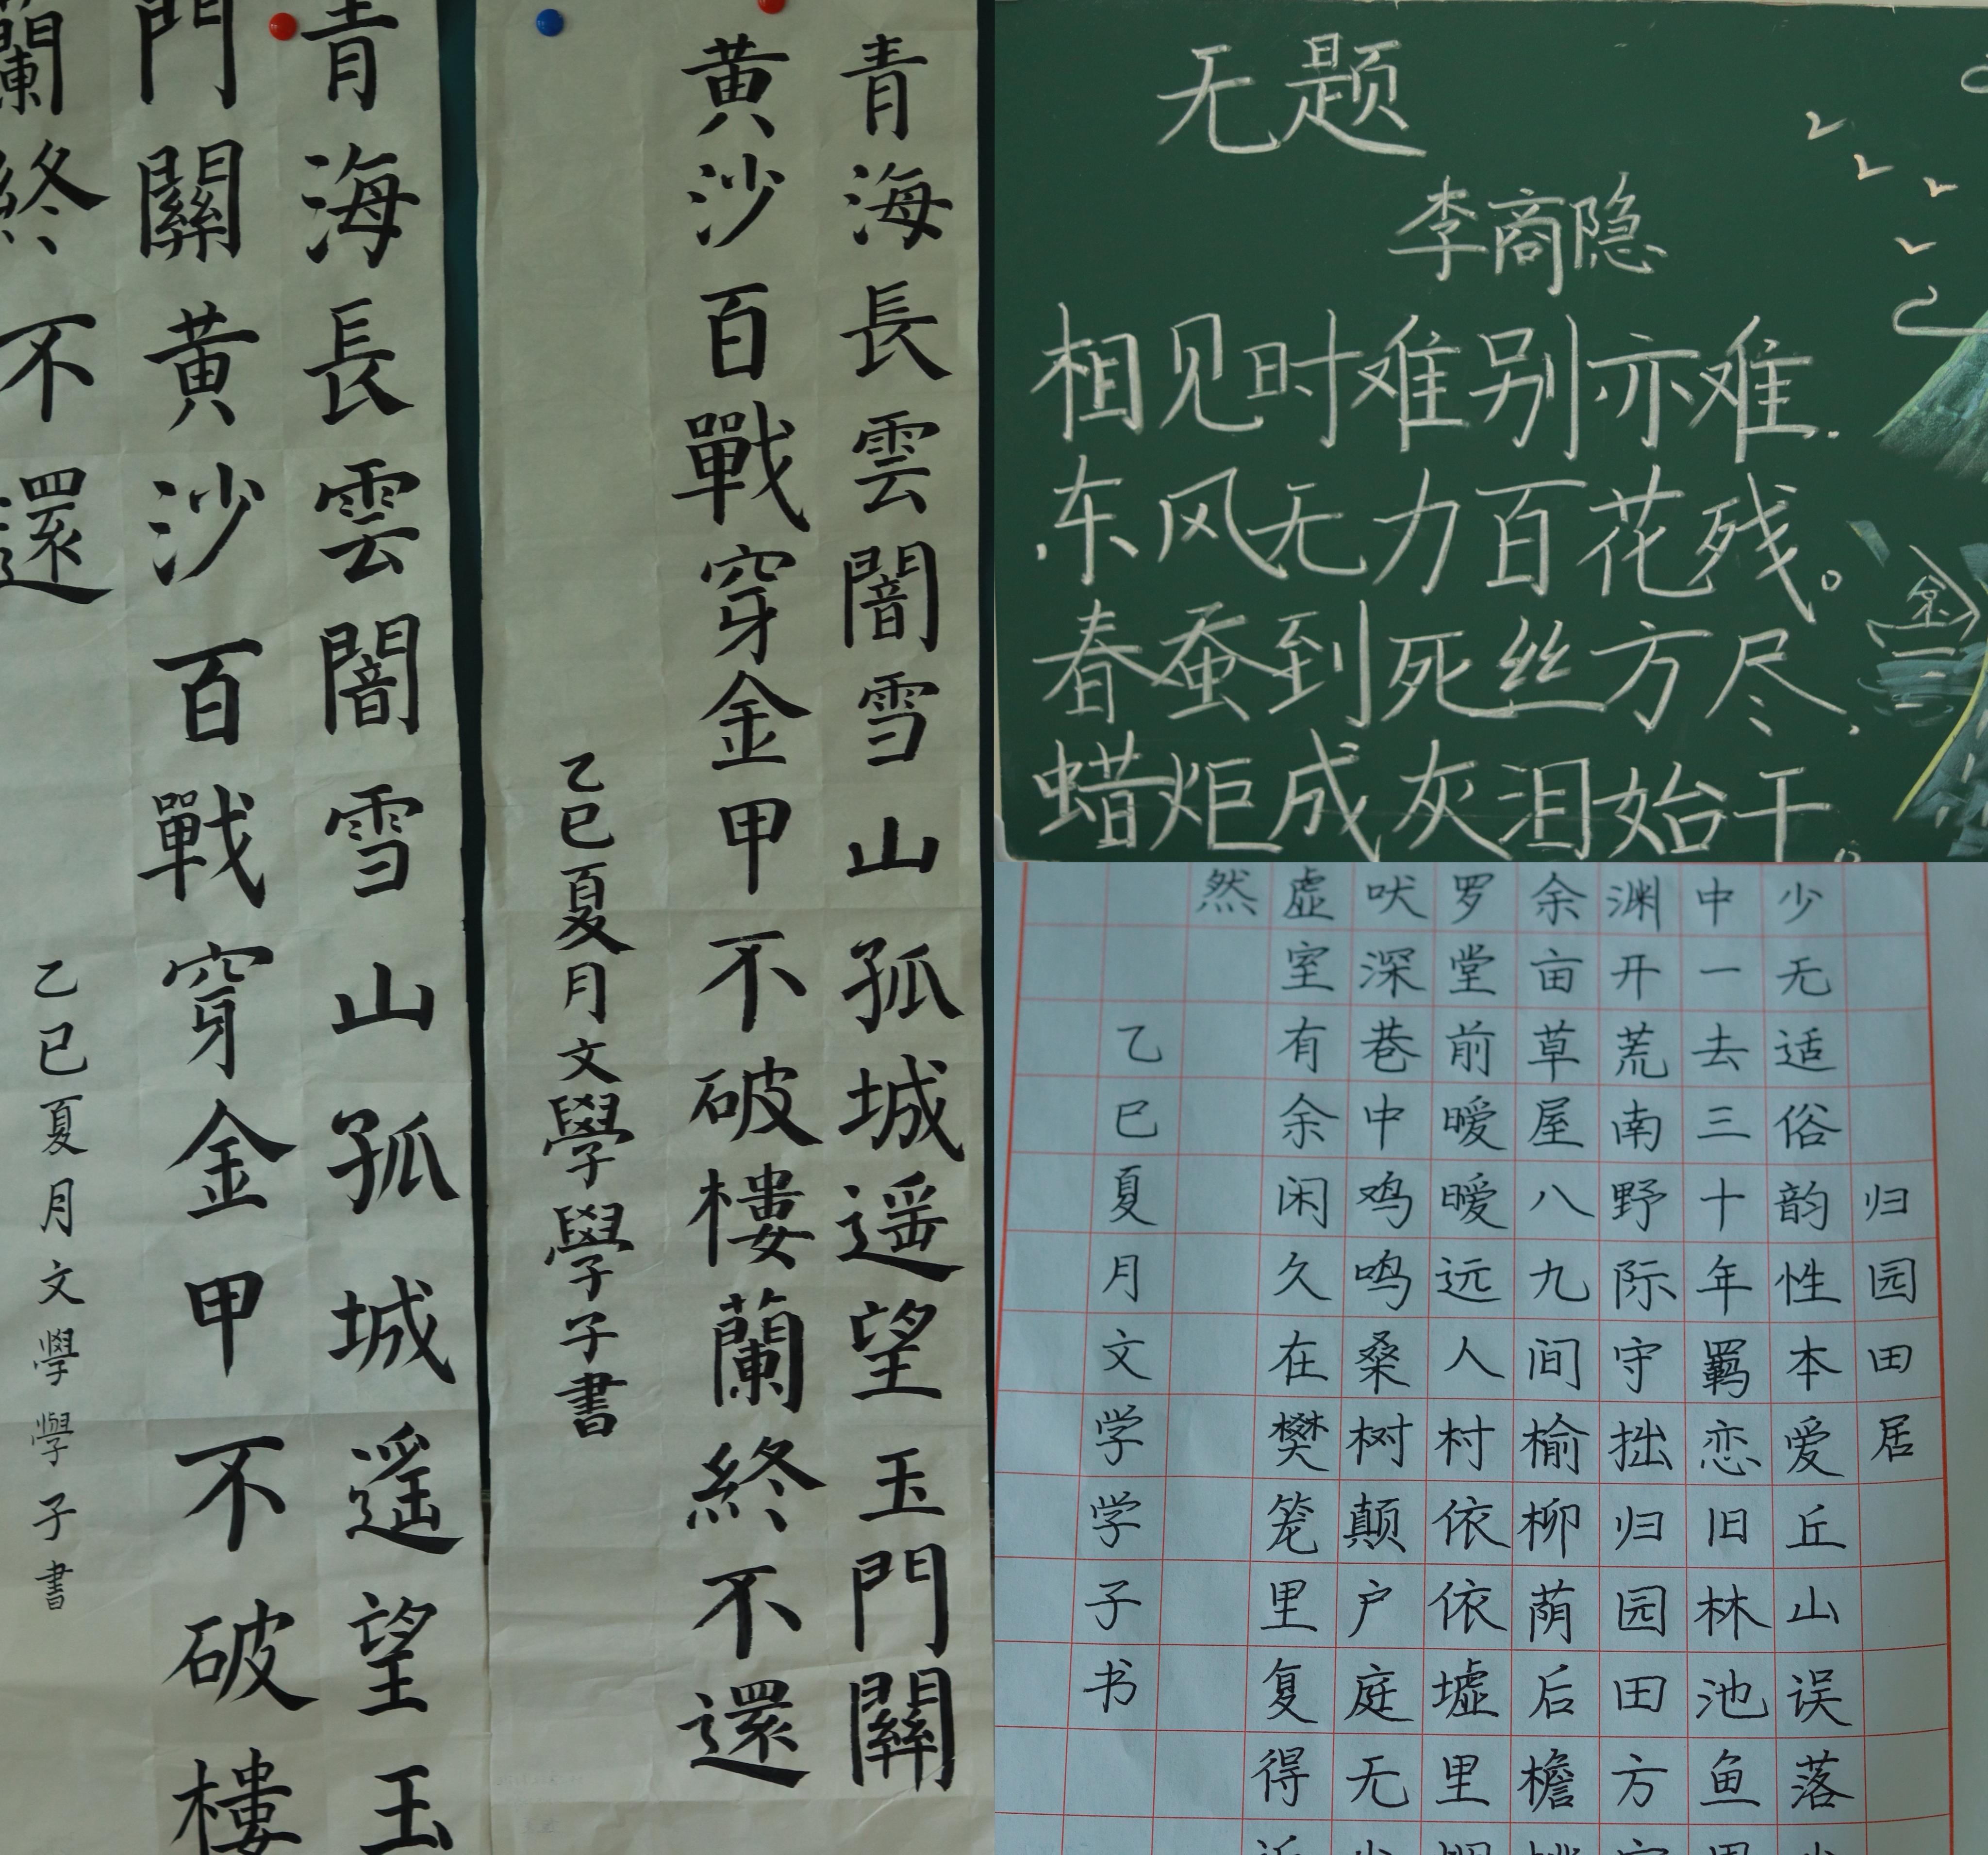 青海長雲闇雪山孤城遥望玉
門關黄沙百戰穿金甲不破樓
蘭終不還
乙巳夏月文學學子書
青海長雲闇雪山孤城遥望玉門關
黄沙百戰穿金甲不破樓蘭終不還
乙巳夏月文學學子書
无题
李商隐
相见时难别亦难.
东风无力百花残。
春蚕到死丝方尽,
蜡炬成灰泪始干。
归园田居
少无适俗韵性本爱丘山误落
中一去三十年羁恋旧林池鱼
渊开荒南野际守拙归园田方
余亩草屋八九间榆柳荫后檐
罗堂前暧暧远人村依依墟里
吠深巷中鸡鸣桑树颠户庭无
虚室有余闲久在樊笼里复得
然
乙巳夏月文学学子书